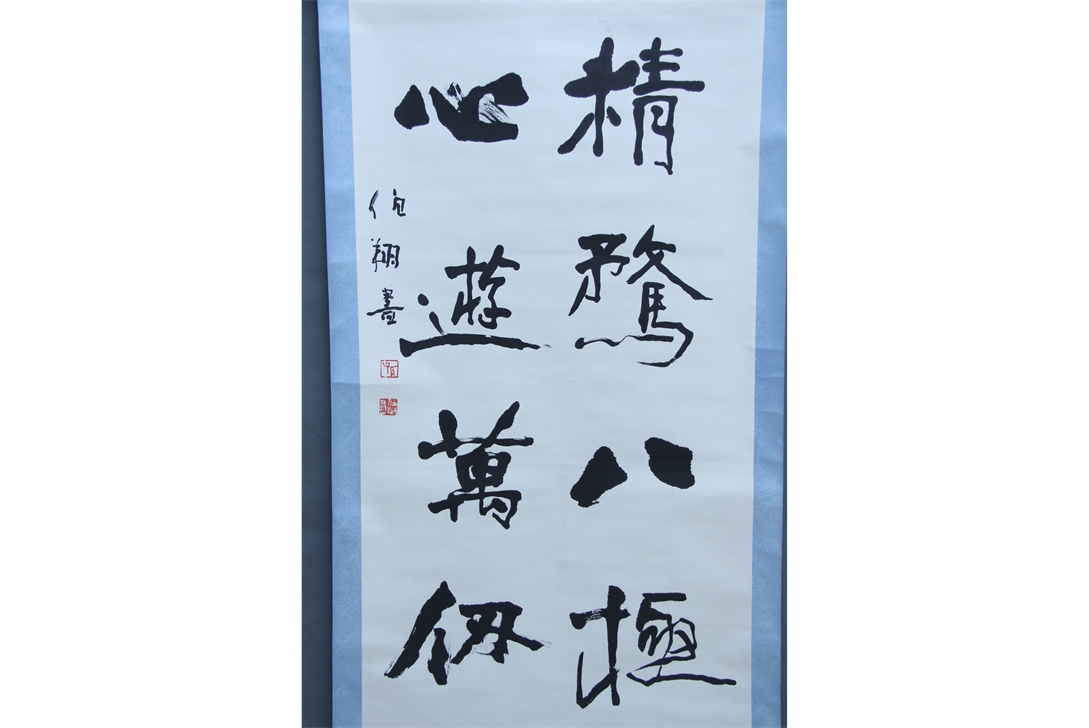 精騖八極
心遊萬仞
伯翔書